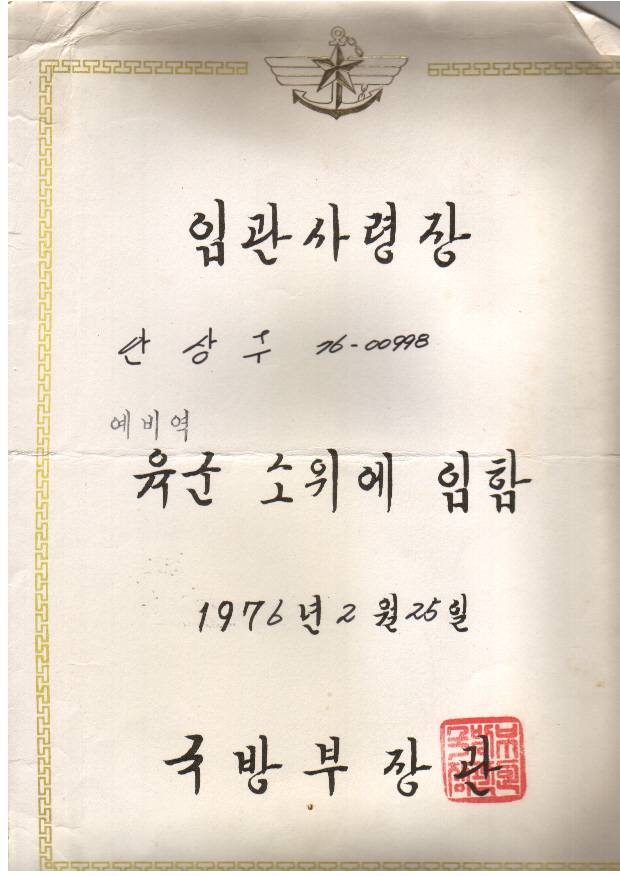 임관사령장
안상수 76-00998
예비역
육군 소위에 임함
1976년 2월 25일
국방부장관